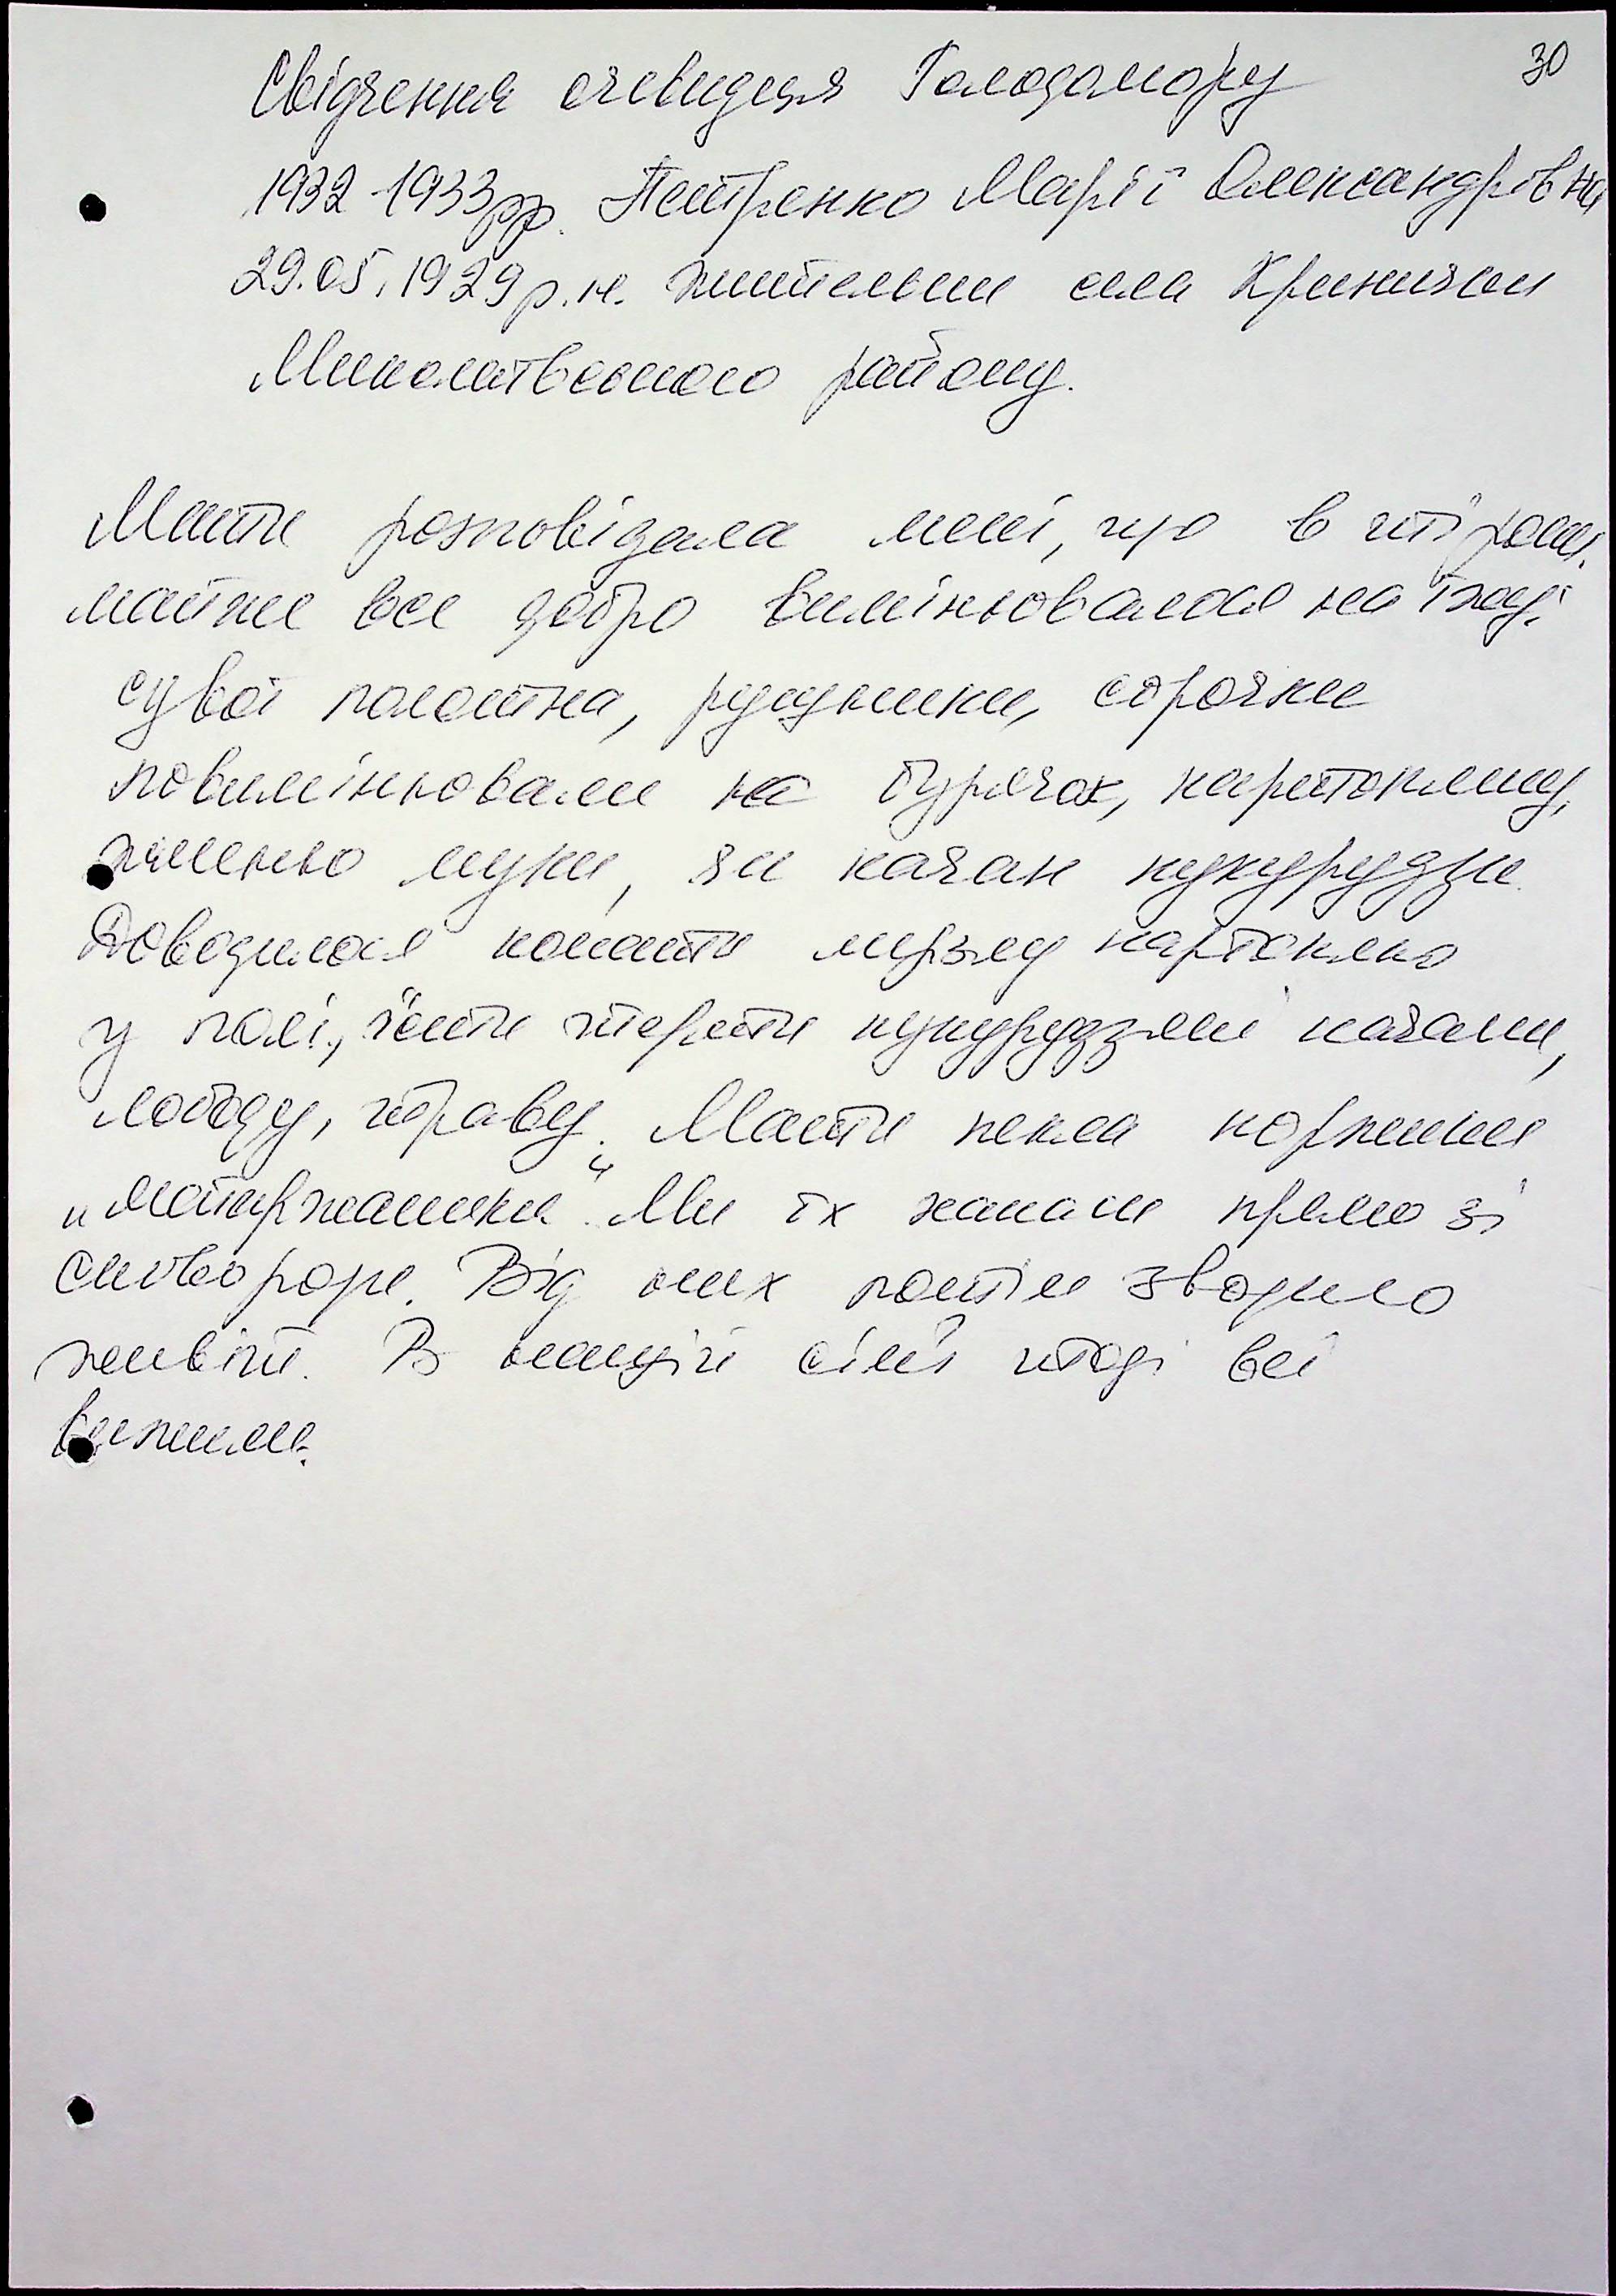 30
Свідчення очевидця Голодомору
1932-1933рр. Петренко Марії Олександрівни
29.05.1929р.н. жительки села Кринички
Миколаївського району.
Мати розповідала мені, що в ті роки
майже все добро вимінювалося на їжу:
сувої полотна, рушники, сорочки
повимінювали на бурячок, картоплину,
жменьо муки, чи качан кукурудзи.
Доводилося копати мерзлу картоплю
у полі, їсти терти кукурудзяні качани,
лободу, траву. Мати пекла коржики
„маторжаники". Ми їх хапали прямо зі
сковороди. Від них потім зводило
живіт. В нашій сім'ї тоді всі
вижили.